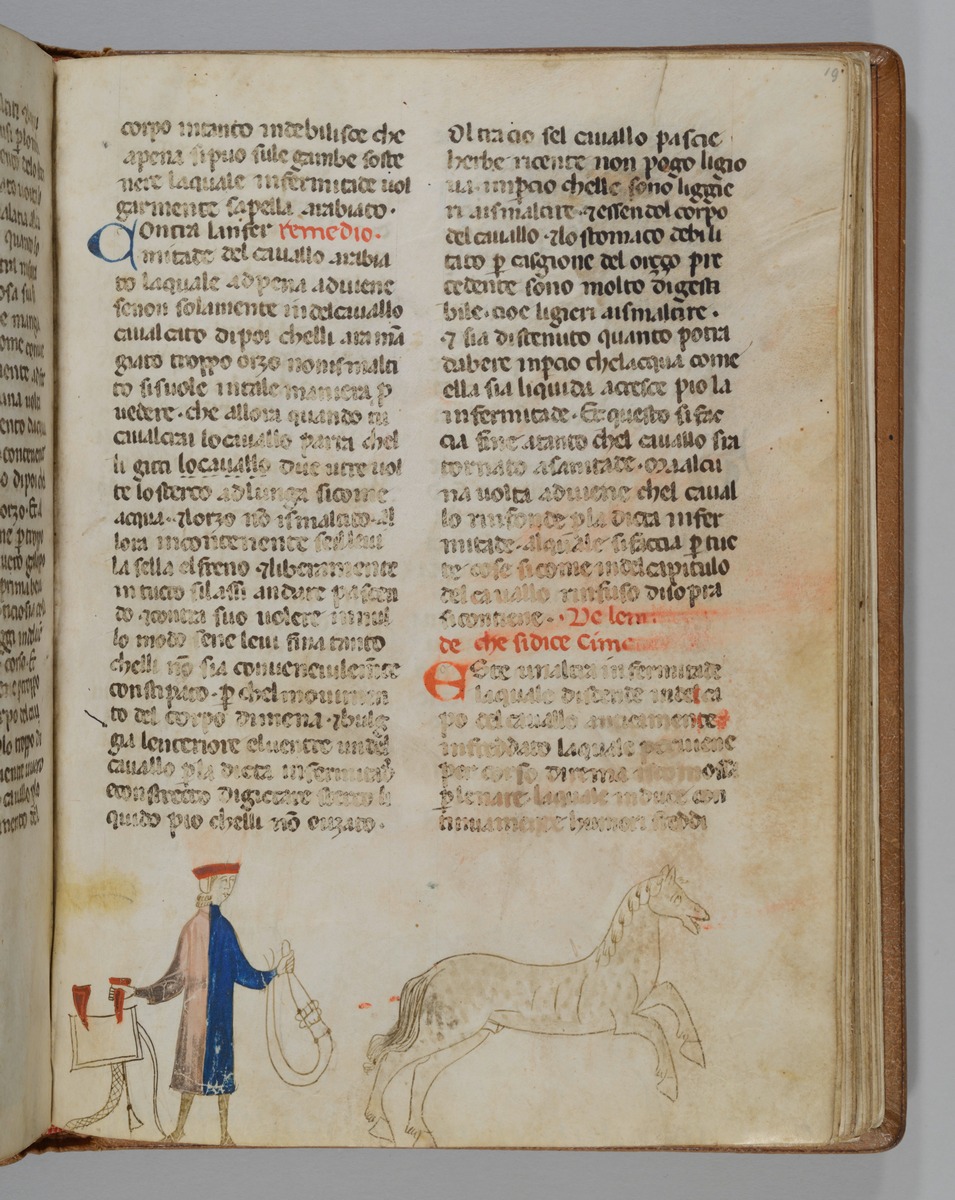 19
corpo intanto indebilisce che
apena sipuo sule gambe soste
nere laquale infermitade uol
garmente sapella arabiato.
Contra linfer remedio.
mitade del cauallo arabia
to laquale adpena aduiene
senon solamente indelcauallo
caualcato dipoi chelli ara mā
giato troppo orzo nonismalti
to sisuole intale maniera ꝓ
uedere. che allora quando tu
caualcarai lo cauallo parra chel
li gitti locauallo due utre uol
te lo sterco adlunga sicome
acqua. ⁊lorzo nō ismaltito. Al
lora incontenente
la sella elfreno ⁊liberamente
intucto silassi andare pascen
do. ⁊contra suo uolere innul
lo modo sene leui fina tanto
chelli nō sia conueneuilem̄te
constipato. ꝑ chel mouimen
to del corpo dimena. ⁊bulg
gia lenteriore eluentre indel
cauallo ꝑla dicta infermita
constrecto digictare sterco li
quido pio chelli nō euzato.
Oltracio sel cauallo pascie
herbe ricente non pogo ligio
ua. inꝑcio chelle sono liggie
ri aismaltire. ⁊essendol corpo
del cauallo ⁊lo stomaco debili
tato ꝑ casgione del orgço pre
cedente sono molto digesti
bile. cioe ligieri aismaltire.
⁊ sia distenuto quanto potra
dabere inꝑcio chelacqua come
ella sia liquida acresce pio la
infermitade. Et questo si fac
cia fine atanto chel cauallo sia
tornato asanitade. ora alcu
na uolta aduiene chel caual
lo rinfonde ꝑla dicta infer
mitade. alquale sifaccia ꝑ tuc
te cose sicome indelcapitulo
del cauallo rinfuso disopra
sicontiene. De
de che sidice Cimo
Este unaltra infermitade
laquale distende indel ca
po del cauallo anticamente
infreddato laquale peruiene
per corso direma
laquale induce con
tinuamente humori freddi